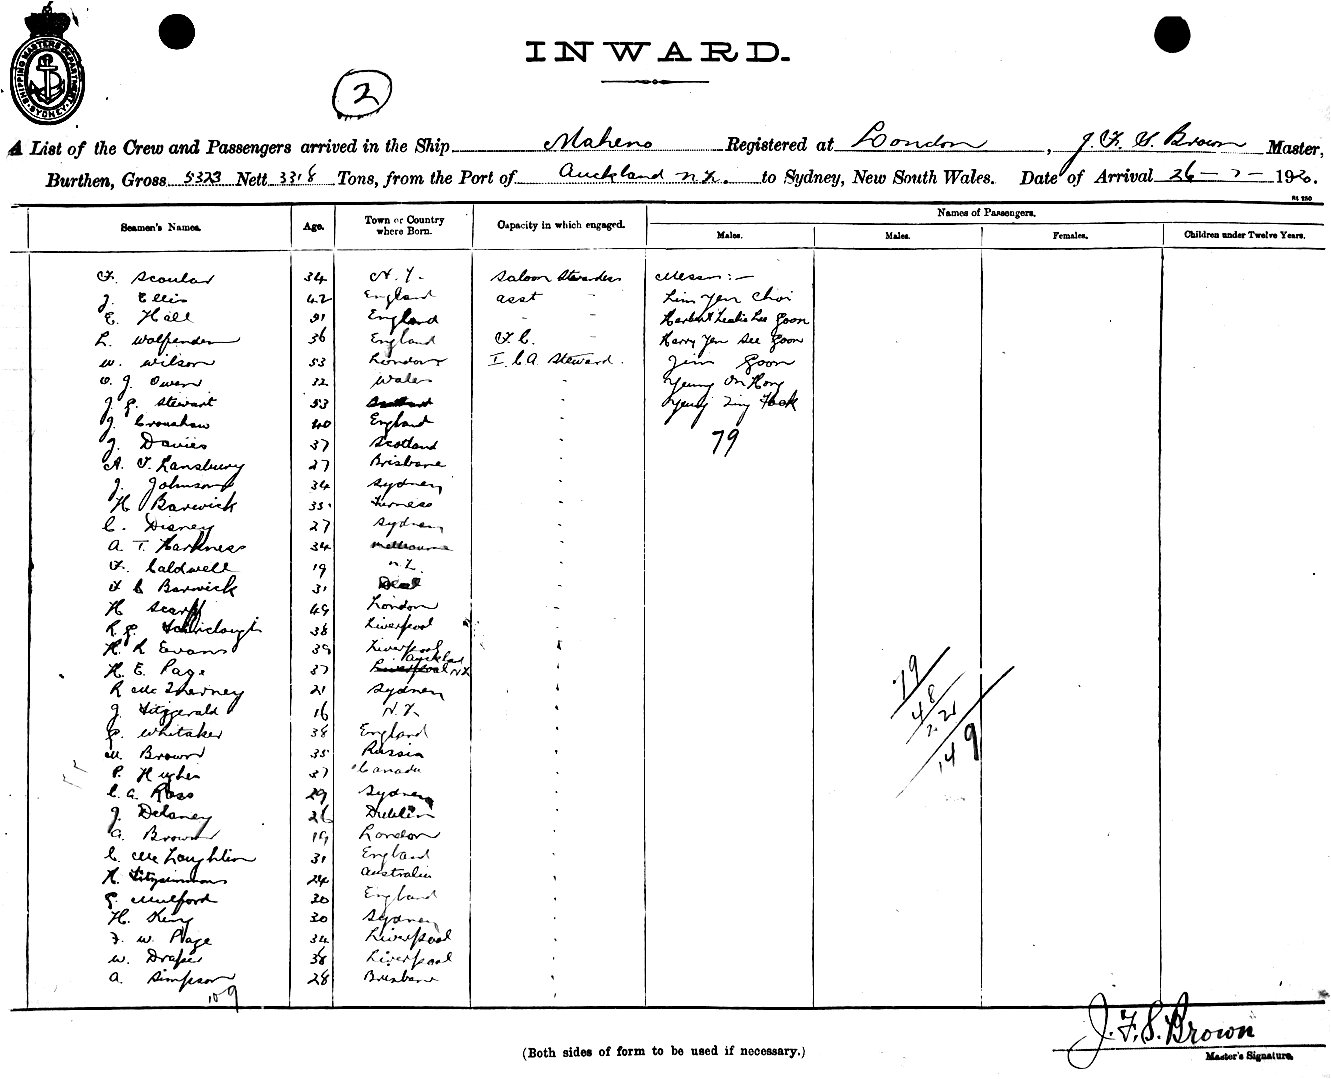 SHIPPING MASTERS DEPARTMENT SYDNEY
INWARD.
2
A List of the Crew and Passengers arrived in the Ship Maheno Registered at London, J. F. S. Brown Master,
Burthen, Gross 5323 Nett 3318 Tons, from the Port of Auckland N.Z. to Sydney, New South Wales. Date of Arrival 26 - 7 - 1920.
Seamen's Names. Age. Town or Country where Born. Capacity in which engaged. Names of Passengers.
Males. Males. Females. Children under Twelve Years.
F. Scoular 34 N.Z. Saloon Stewardess Messrs :-
J. Ellis 42 England asst " Lim Yen Choi
E. Hall England " " Herbert Leslie Lee Goon
L. Wolfenden 36 England F.C. " Harry Yen See Goon
W. Wilson 53 London Steward. Jim Goon
O. J. Owen 32 Wales " Yeung On Hong
J. G. Stewart 53 " Yeung Hock
J. Cronshaw 40 England "
J. Davies 37 Scotland " 79
A. F. Lansbury 27 Brisbane "
J. Johnson 34 Sydney "
H Barwick 35 Furness "
C. Disney 27 Sydney "
A. T. Harkness 34 Melbourne "
F. Caldwell 19 N.Z. "
F C Barwick 31 Deal "
H Scarff 49 London "
R. G. 38 Liverpool "
H. R Evans 39 Liverpool "
H. E. Page 37 Liverpool Auckland NZ "
R Mc Inerney 21 Sydney "
J. Fitzgerald 16 N.Z. "
G. Whitaker 38 England "
M. Brown 35 Russia "
P. Hughes 37 Canada "
C. A. Ross 29 Sydney "
J. Delaney 26 Dublin "
A. Brown 19 London "
C. McLaughlin 31 England "
H. Fitzsimmons 24 Australia "
G. Mulford 20 England "
H. King 30 Sydney "
F. W. Page 34 Liverpool "
W. Draper 38 Liverpool "
A. Simpson 28 Brisbane "
109
79
48
149
J. F. S. Brown
Master's Signature.
(Both sides of form to be used if necessary.)